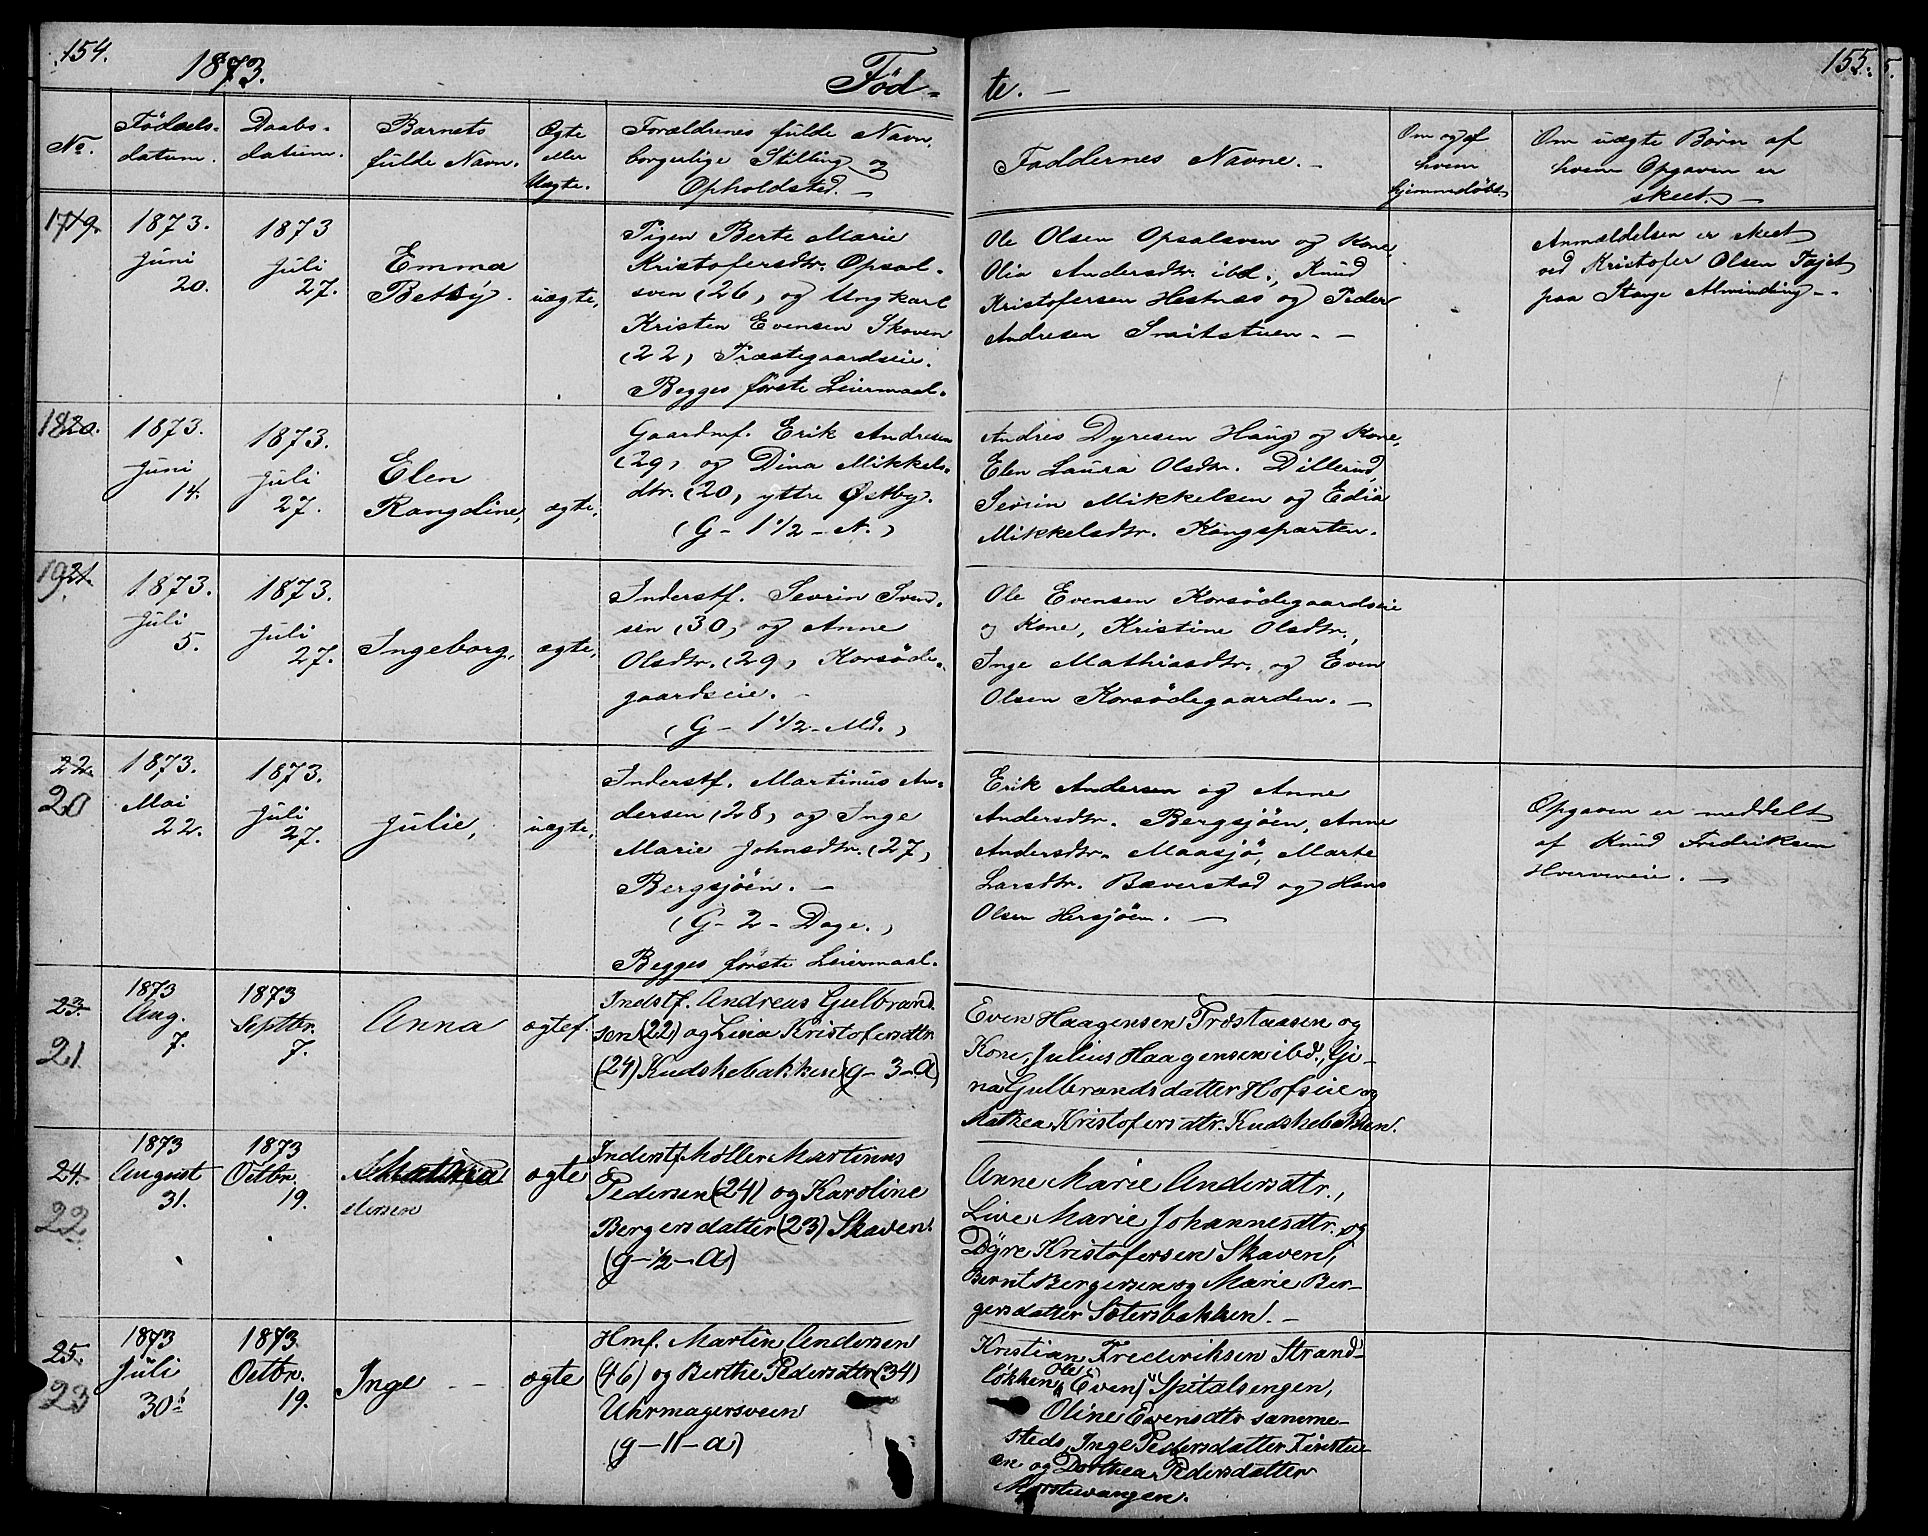 154.
1873.
Fød-
te. —
155.
No.
Födsels-
datum.
Daabs-
datum.
Barnets
fulde Navn.
Ægte
eller
Uægte.
Forældrenes fulde Navn,
borgerlige Stilling og
Opholdsted. —
Faddernes Navne. —
Om og af
hvem
hjemmedöbt.
Om uægte Börn af
hvem Opgaven er
skeet. —
17 19.
1873.
Juni
20.
1873
Juli
27.
Emma
Betsy.
uægte,
Pigen Berte Marie
Kristofersdtr. Opsal-
sven (26) og Ungkarl
Kristen Evensen Skoven
(22) Præstegaardseie.
Begges förste Leiermaal.
Ole Olsen Opsalsven og Kone,
Olia Andersdtr. ibd., Knud
Kristofersen Hestnes og Peder
Andresen Smitstuen. —
Anmældelsen er skeet
ved Kristofer Olsen Fajet
paa Stange Alminding. -
18 20.
1873.
Juni
14.
1873.
Juli
27.
Elen
Rangdine,
ægte,
Gaardmf. Erik Andresen
(29) og Dina Mikkels-
dtr. (20) yttre Østby.
(G - 1 1/2 - A.)
Andres Dyresen Haug og Kone,
Elen Laura Olsdtr. Dillerud,
Sevrin Mikkelsen og Edia
Mikkelsdtr. Kongsparten.
19 21.
1873.
Juli
5.
1873.
Juli
27.
Ingeborg,
ægte,
Inderstf. Sevrin Svend-
sen (30) og Anne
Olsdtr. (29) Korsöde-
gaardseie. —
(G - 1 1/2 - Md.)
Ole Evensen Korsödegaardseie
og Kone, Kristine Olsdtr.,
Inge Mathiasdtr. og Even
Olsen Korsödegaarden. —
22.
20
1873.
Mai
22.
1873.
Juli
27.
Julie,
uægte,
Inderstf. Martinus An-
dersen (28) og Inge
Marie Johnsdtr. (27)
Bergsjöen. —
(G - 2 - Dage.)
Begges förste Leiermaal.
Erik Andersen og Anne
Andersdtr. Bergsjöen, Anne
Andersdtr. Maasjö, Marte
Larsdtr. Bæverstad og Hans
Olsen Hersjöen. —
Opgaven er meddelt
af Knud Fredriksen
Hverveneie. —
23.
21.
1873
Aug.
7.
1873
Septbr.
7.
Anna
ægtef.
Indstf. Andreas Gulbrand-
sen (22) og Lisia Kristofersdtr
(24) Kudskebakken (g - 3 - a)
Even Haagensen Frøstaasen og
Kone, Julius Haagensen ibd., Gi-
na Gulbrandsdatter Hofseie og
Mathea Kristofersdtr. Kudskebakken.
24.
22.
1873
August
31.
1873
Octbr.
19.
ægte
Inderstf. Møller Martinus
Pedersen (24) og Karoline
Bergersdatter (23) Skaven.
(g - 1/2 - a)
Anne Marie Andersdtr.,
Live Marie Johannesdtr. og
Dÿre Kristofersen Skaven,
Bernt Bergersen og Marie Ber-
gersdatter Sætersbakken. —
25.
23
1873
Juli
30.
1873
Octbr.
19.
Inge —
ægte
Hmf. Martin Andersen
(46) og Berthe Pedersdtr (34)
Uhrmagersveen
(g - 11 - a)
Kristian Frederiksen Strand-
løkken, Ole "Even" Spitalsengen,
Oline Evensdtr samme-
steds, Inge Pedersdatter Finstu-
en og Dorthea Pedersdatter
Morstuvangen.